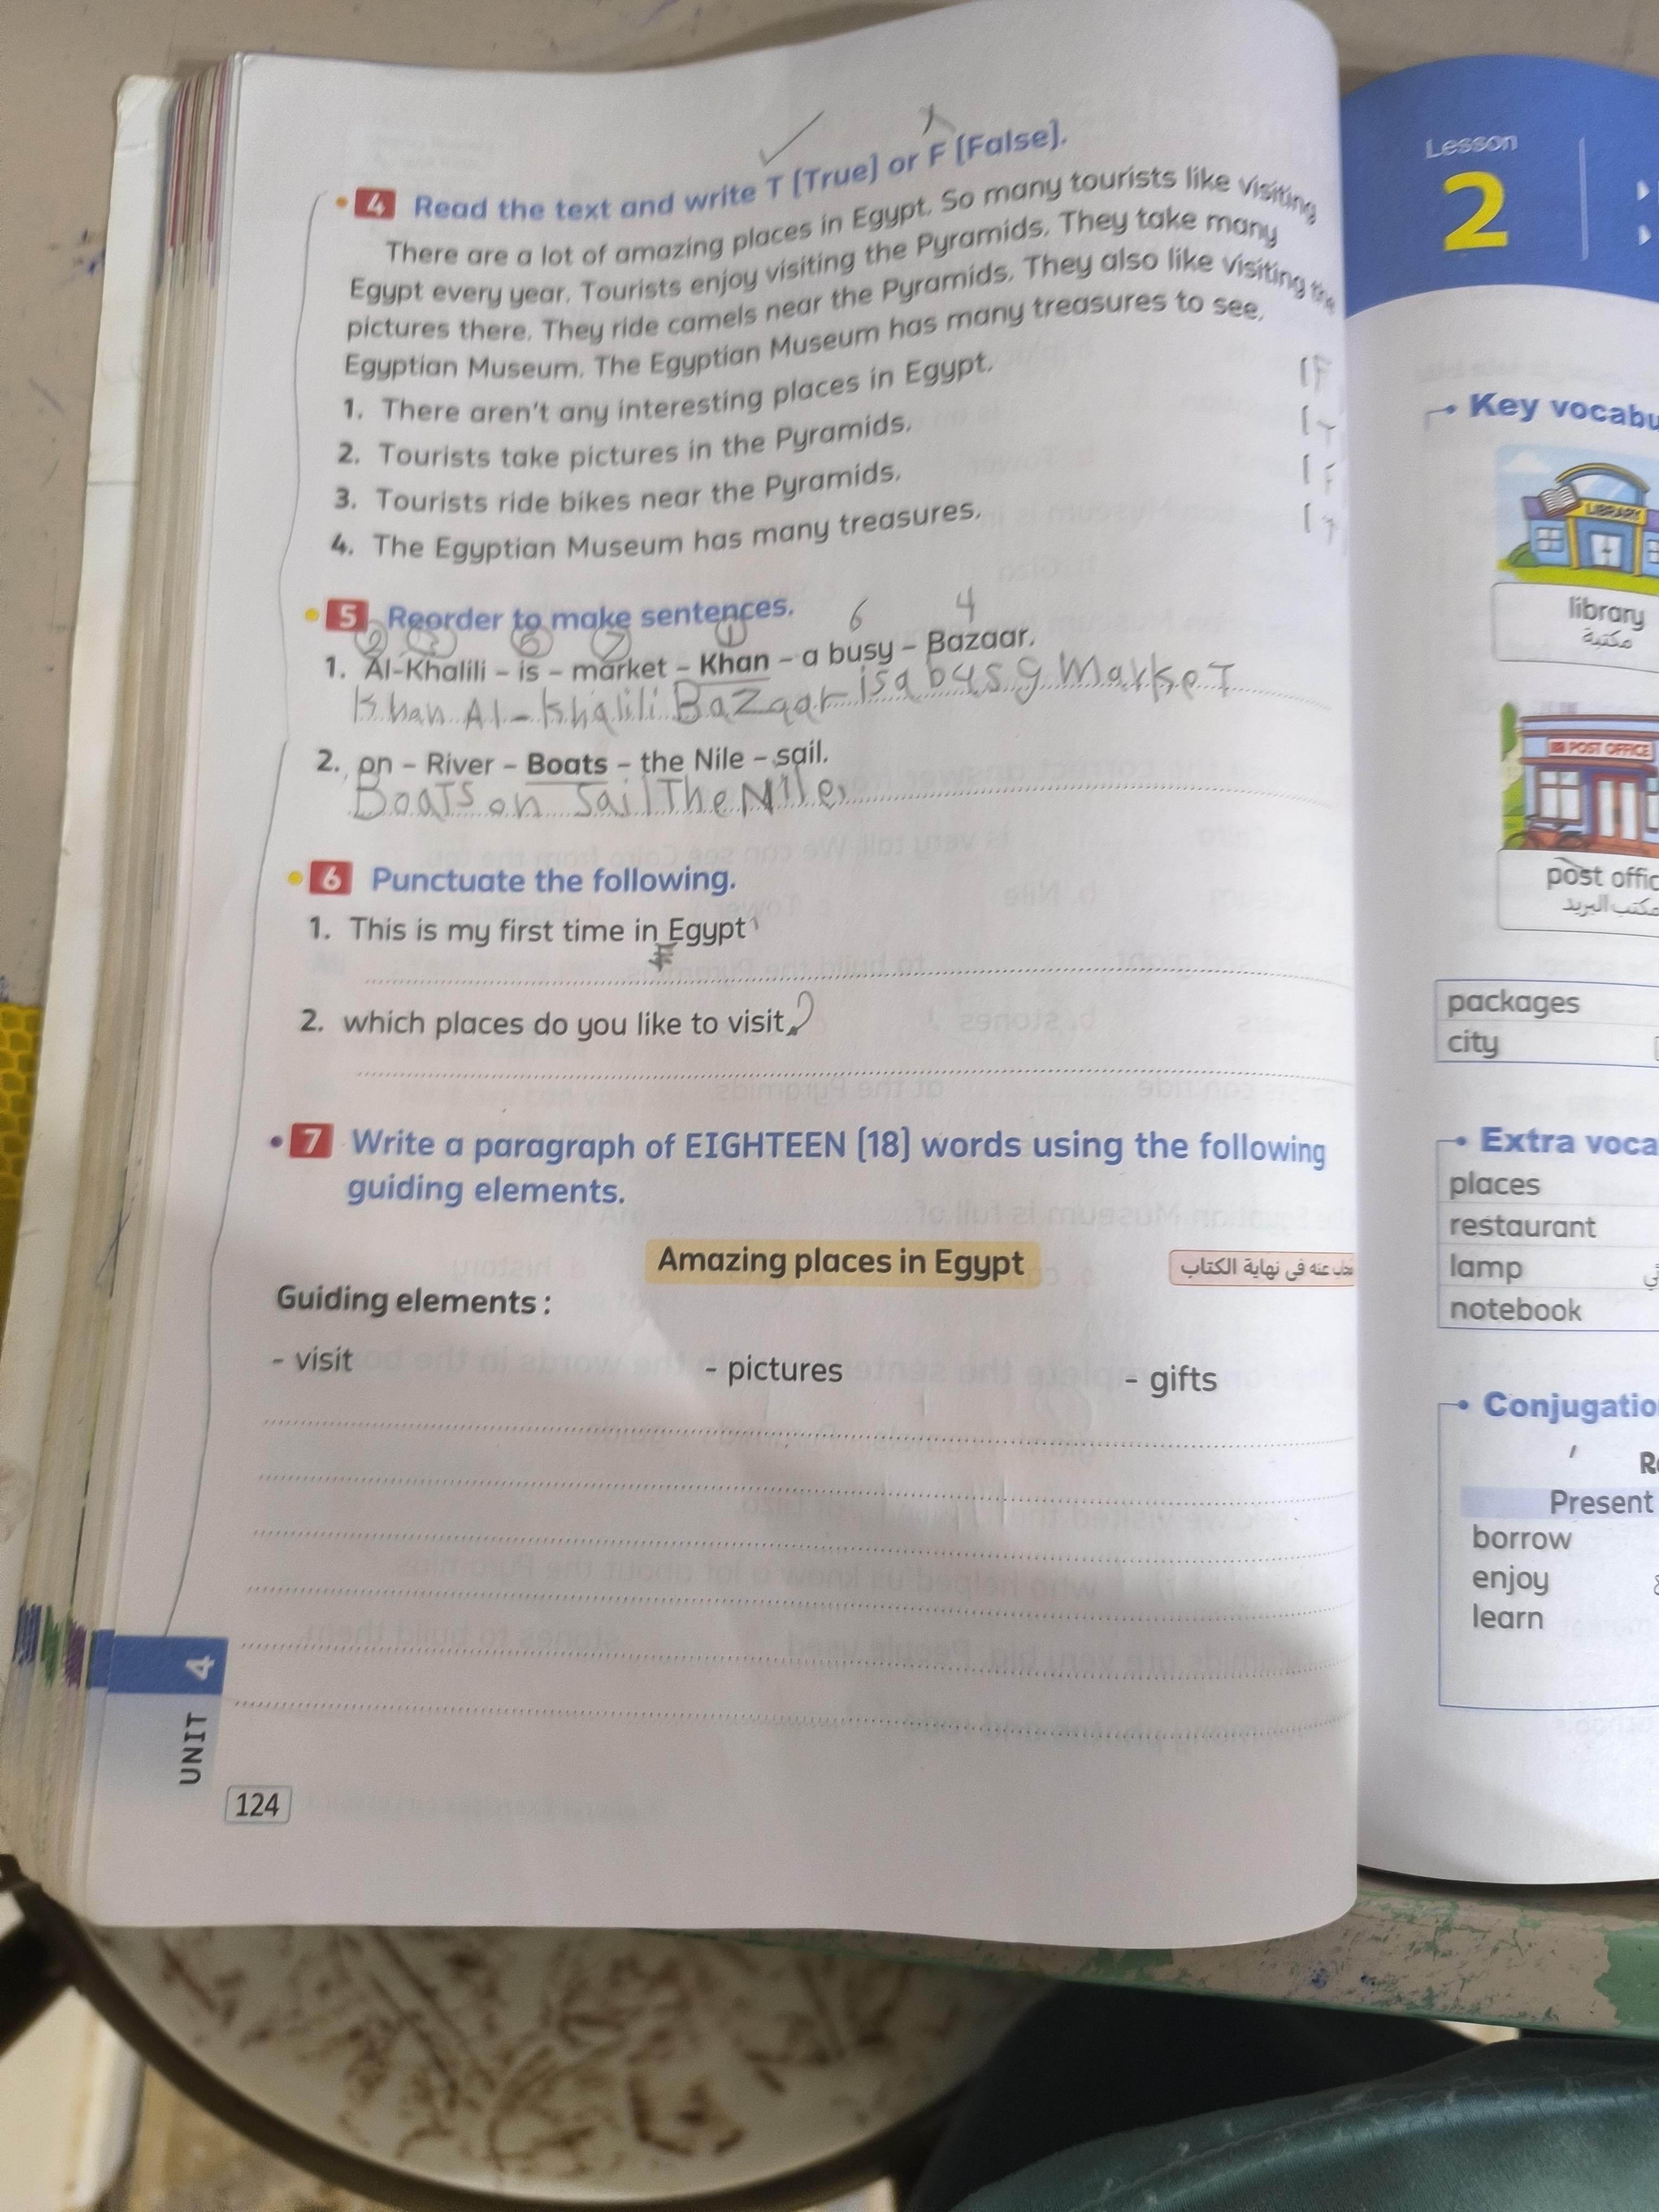 4 Read the text and write T (True) or F (False).
There are a lot of amazing places in Egypt. So many tourists like visiting
Egypt every year. Tourists enjoy visiting the Pyramids. They take many
pictures there. They ride camels near the Pyramids. They also like visiting the
Egyptian Museum. The Egyptian Museum has many treasures to see.
1. There aren't any interesting places in Egypt. [F
2. Tourists take pictures in the Pyramids. [T
3. Tourists ride bikes near the Pyramids. [F
4. The Egyptian Museum has many treasures. [T
5 Reorder to make sentences.
6 4
1. Al-Khalili – is – market – Khan – a busy – Bazaar.
Khan Al-Khalili Bazaar is a busy Market
2. on – River – Boats – the Nile – sail.
Boats on Sail The Nile
6 Punctuate the following.
1. This is my first time in Egypt
2. which places do you like to visit?
7 Write a paragraph of EIGHTEEN (18) words using the following
guiding elements.
Amazing places in Egypt
عنه فى نهاية الكتاب
Guiding elements :
- visit - pictures - gifts
UNIT 4
124
Lesson
2
Key vocabu
LIBRARY
library
مكتبة
POST OFFICE
post offic
مكتب البريد
packages
city
Extra voca
places
restaurant
lamp
notebook
Conjugatio
Re
Present
borrow
enjoy
learn